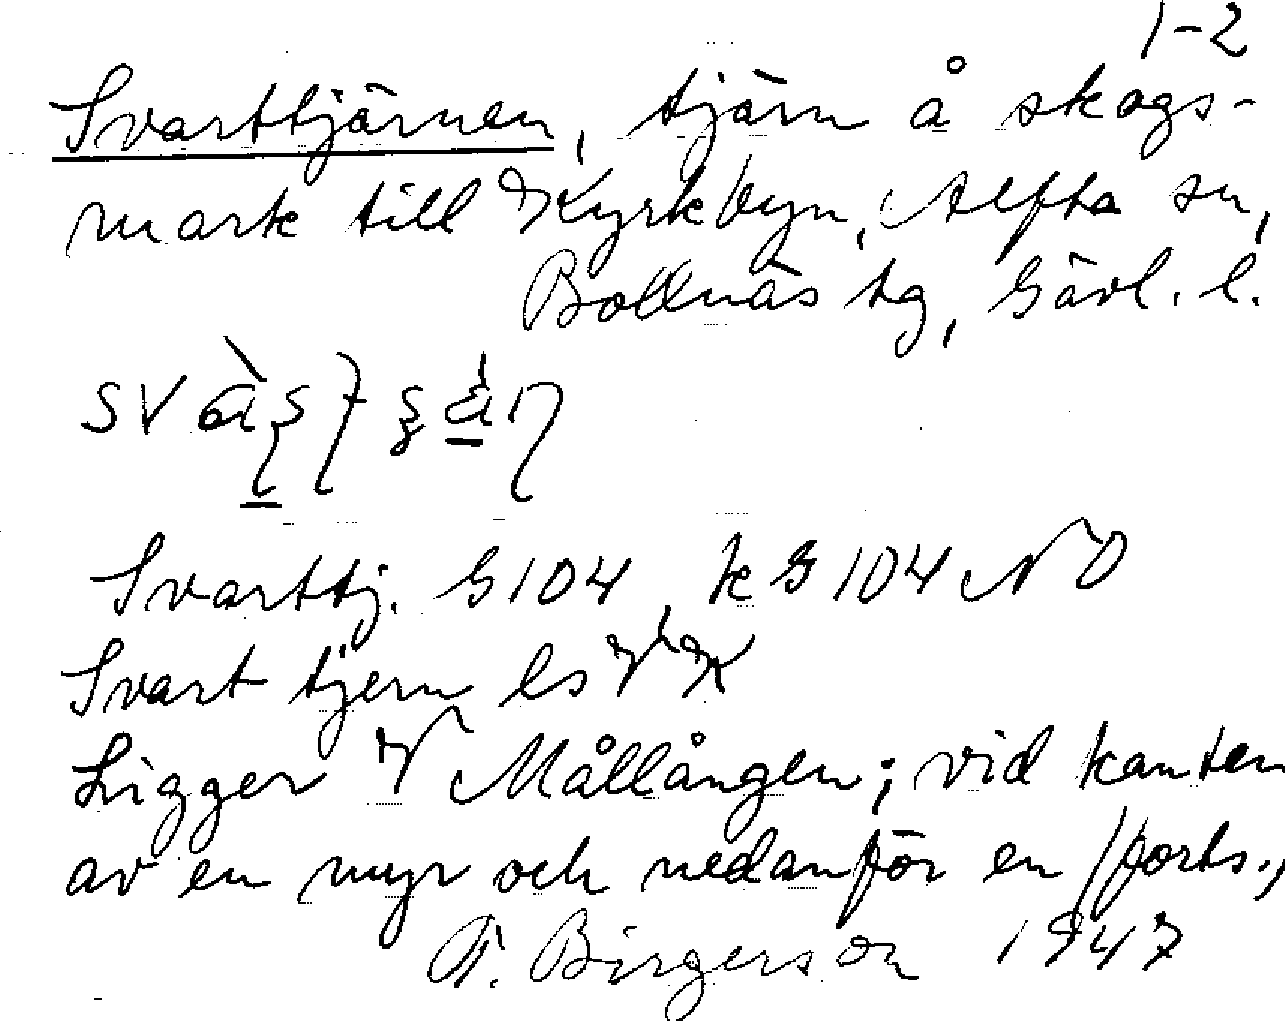 1-2
Svarttjärnen, tjärn å skogs-
mark till Kyrkbyn, Alfta sn,
Bollnäs tg, Gävl. l.
Svarttj. G104, k G 104 NO
Svart tjern ls V K
Ligger V Mållången; vid kanten
av en myr och nedanför en (forts.)
F. Birgerson 1947